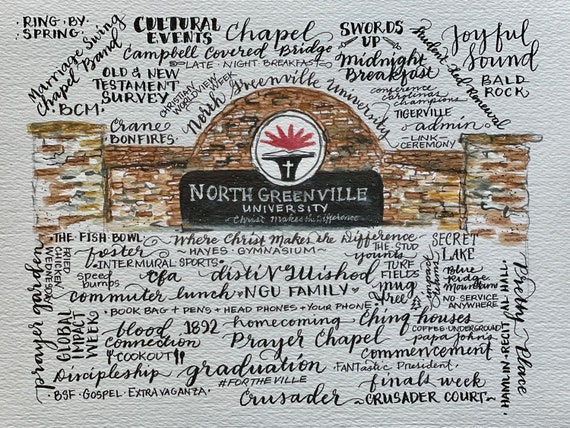 • RING • BY •
SPRING •
CULTURAL
EVENTS
Chapel
SWORDS
UP
Student Led Renewal
Joyful
Sound
Marriage Swing
Chapel Band
Campbell Covered Bridge
LATE • NIGHT • BREAKFAST
midnight
Breakfast
BALD
ROCK
OLD & NEW
TESTAMENT
SURVEY
CHRISTIAN
WORLDVIEW WEEK
North Greenville University
conference
carolinas
champions
BCM •
TIGERVILLE
admin
– LINK –
CEREMONY
Crane
• BONFIRES •
NORTH GREENVILLE
UNIVERSITY
Christ Makes the Difference
• THE FISH • BOWL
Where Christ Makes the Difference
SECRET
LAKE
foster
~ HAYES • GYMNASIUM ~
THE STUD
younts
prayer garden
FRIED
CHICKEN
WEDNESDAY
• INTERMURAL SPORTS •
TURF
FIELDS
Blue
Ridge
Mountains
speed
bumps
cfa
mug
tree
• NO • SERVICE
ANYWHERE •
commuter lunch • NGU FAMILY •
• BOOK BAG + PENS + HEAD PHONES + YOUR PHONE •
GLOBAL
IMPACT
WEEK
blood
connection
1892
homecoming
Ching houses
COFFEE • UNDERGROUND
papa John's
Prayer Chapel
COOKOUT
commencement
• HAMLIN • RECITAL • HALL •
Pretty Place
Discipleship
graduation
• FANTASTIC President •
• #FORTHEVILLE
finals week
• BSF • GOSPEL • EXTRAVAGANZA •
Crusader
~ CRUSADER COURT ~